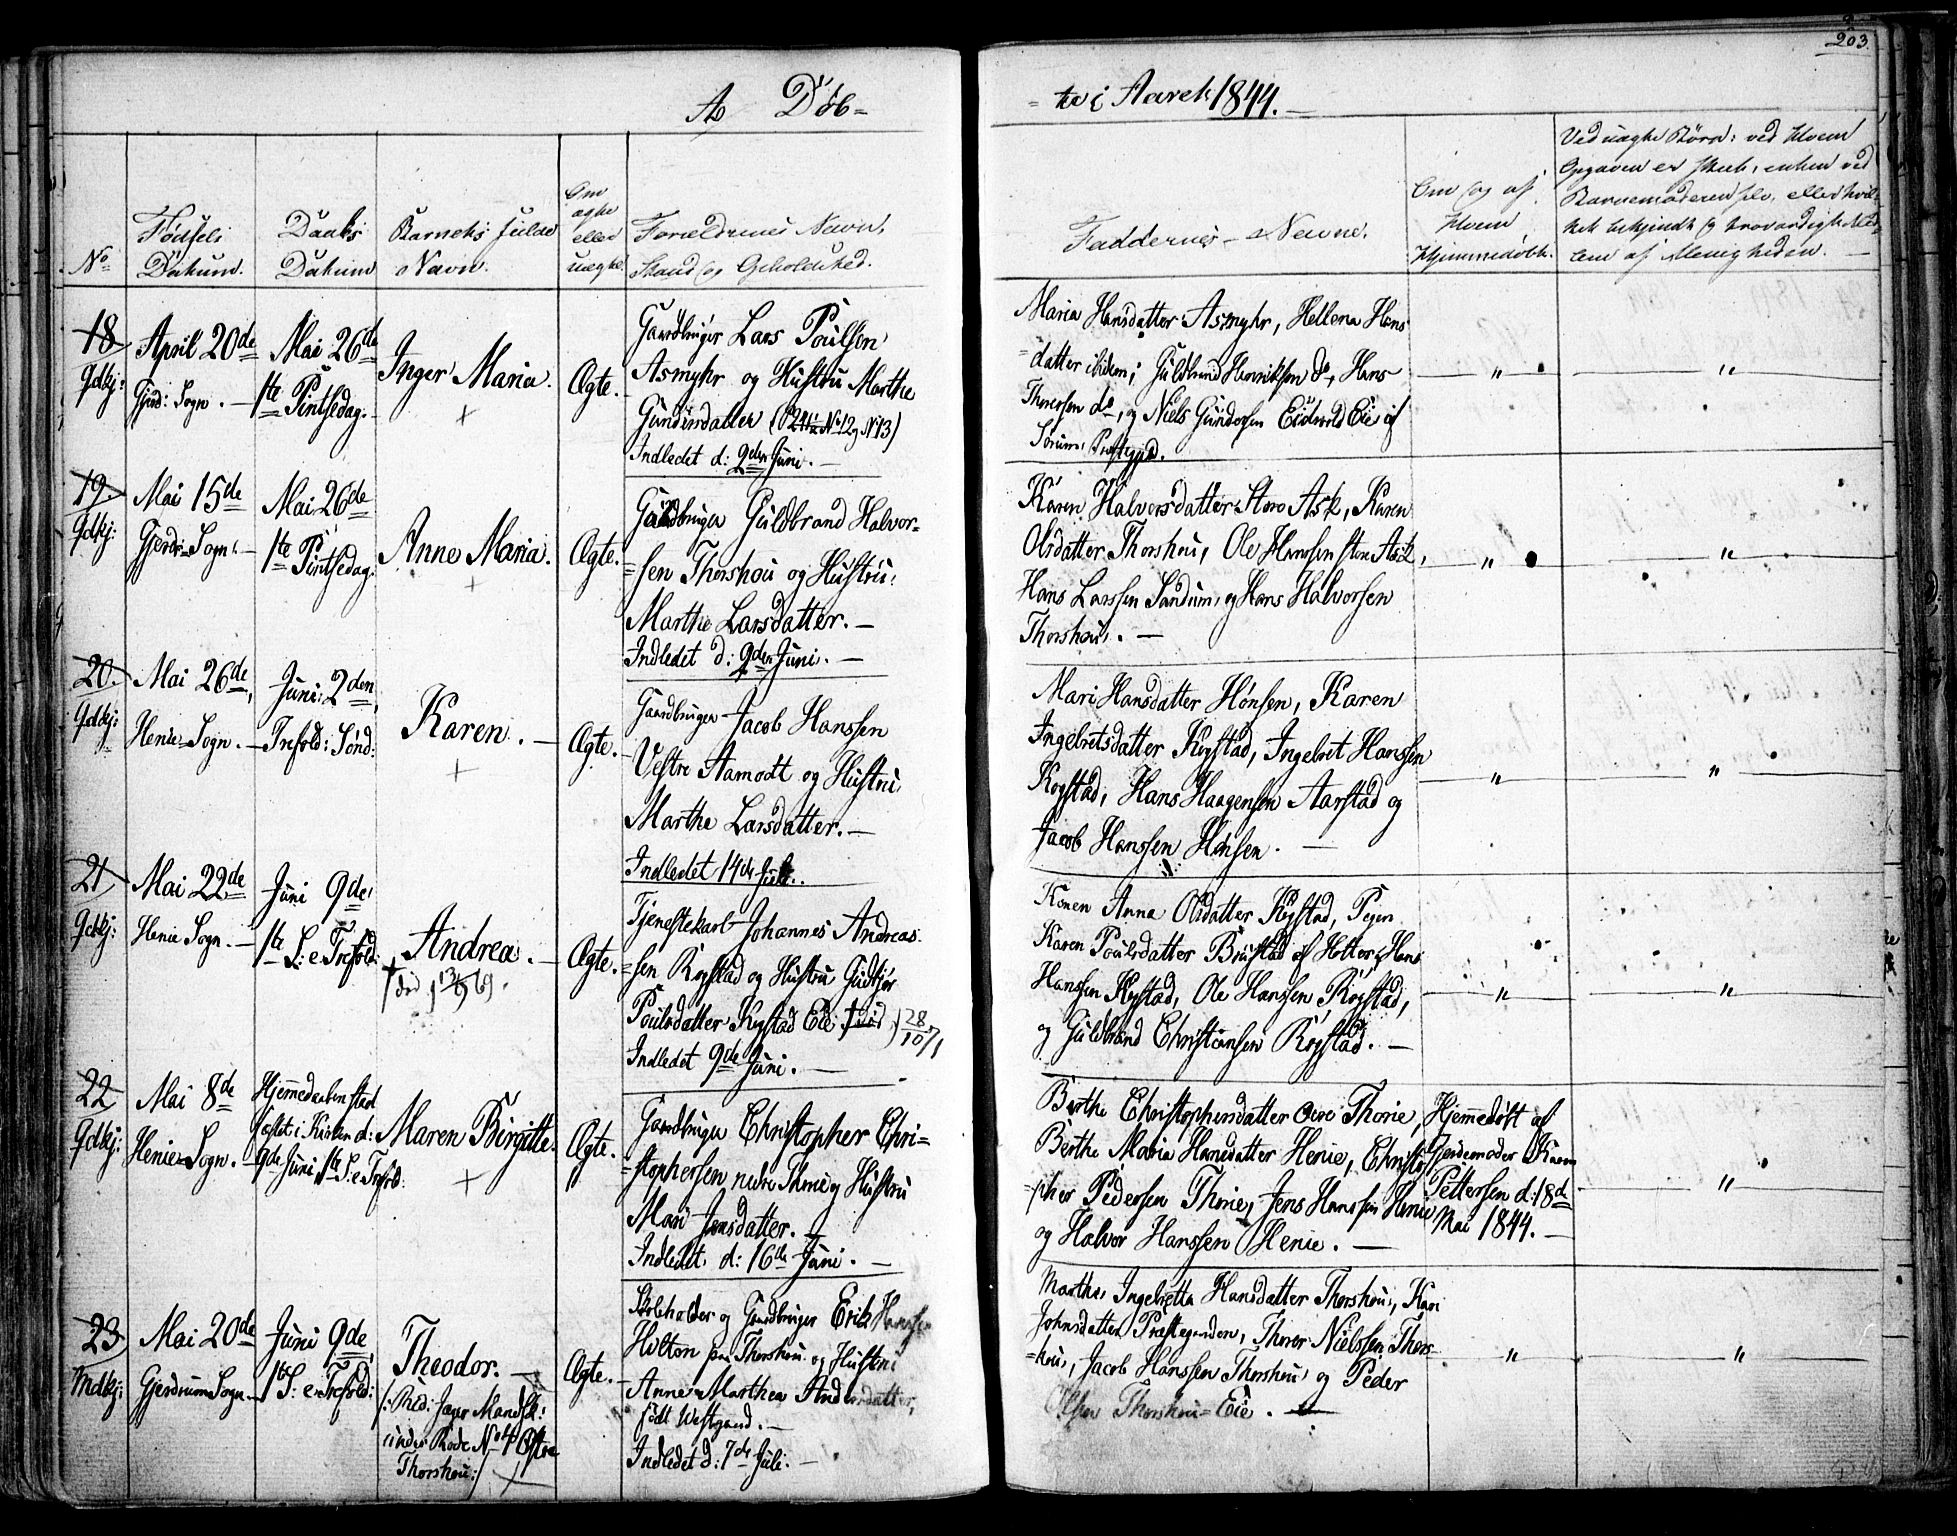 203.
A Döb=
=te i Aaret 1844.
No
Födsels Datum.
Daabs Datum
Barnets fulde Navn.
Om ægte eller uægte.
Forældrenes Navn, Stand og Opholdsted.
Faddernes Navne.
Om og af Hvem Hjemmedöbt.
Ved uægte Börn: ved Hvem
Opgaven er skeet, enten ved
Barnemoderen selv, eller hvil-
ket bekjendt og troværdigt Med-
lem af Menigheden.
18
Qdkj:
April 20de
Gjerd: Sogn.
Mai 26de
1ste Pintsedag.
Inger Maria.
Ægte.
Gaardbruger Lars Poulsen
Asmyhr og Hustru Marthe
Gundersdatter
Indledet d: 9den Juni.
Maria Hansdatter Asmyhr, Hellena Hans
=datter ibidem; Guldbrand Henriksen do, Hans
Thoresen do, og Niels Gundersen Eidsvold Eie af
Sörums Præstegjeld.
19.
Qdkj:
Mai 15de
Gjerdr: Sogn.
Mai 26de
1ste Pintsedag.
Anne Maria.
Ægte.
Gaardbruger Guldbrand Halvor=
=sen Thorshou og Hustru
Marthe Larsdatter.
Indledet d: 9den Juni.
Karen Halvorsdatter Store Ask, Karen
Olsdatter Thorshou, Ole Hanssen store Ask,
Hans Larssen Sandum, og Hans Halvorsen
Thorshou.
20.
Qdkj:
Mai 26de,
Henie Sogn.
Juni: 2den,
Trefold: Sönd:
Karen.
Ægte.
Gaardbruger Jacob Hanssen
Vestre Aamodt og Hustru
Marthe Larsdatter.
Indledet 14de Juli.
Mari Hansdatter Hönsen, Karen
Ingebretsdatter Kogstad, Ingebret Hanssen
Kogstad, Hans Haagensen Aarstad og
Jacob Hanssen Hönsen.
21
Qdkj:
Mai 22de
Henie Sogn.
Juni 9de,
1ste S: e Trefold:
Andrea.
† död 13/9 69.
Ægte.
Tjenestekarl Johannes Andreas=
=sen Kogstad og Hustru Gudbjör
Poulsdatter Kogstad Eie † död 28/10 71
Indledet 9de Juni.
Konen Anna Olsdatter Kogstad, Pigen
Karen Poulsdatter Brustad af Holter, Hans
Hanssen Kogstad, Ole Hanssen Kogstad,
og Guldbrand Christiansen Kogstad.
22
Qdkj:
Mai 8de
Henie Sogn.
Hjemmedaaben stad
fæstet i Kirken d:
9de Juni 1ste S: e Trefold:
Maren Birgitte.
Ægte.
Gaardbruger Christopher Chri=
=stophersen nedre Thorie og Hustru
Mari Jensdatter.
Indledet d: 16de Juni.
Berthe Christophersdatter övre Thorie,
Berthe Maria Hansdatter Henie, Christo
=pher Pedersen Thorie, Jens Hanssen Henie
og Halvor Hanssen Henie.
Hjemmedöbt af
Jordemoder Karen
Pettersen d: 8de
Mai 1844.
23
Mdkj:
Mai 20de
Gjerdrum Sogn.
Juni 9de,
1ste S: e Trefold:
Theodor.
under Rode No 4 Östre
Thorshou:/
Ægte.
Skoleholder og Gaardbruger Erik Hanssen
Hilton paa Thorshou og Hustru
Anne Marthea Andersdatter,
födt Westgaard.
Indledet d: 7de Juli.
Marthe Ingebretta Hansdatter Thorshou, Kari
Johnsdatter Præstegaarden, Thorer Nielssen Thors
=hou, Jacob Hanssen Thorshou og Peder
Olsen Thorshou Eie.